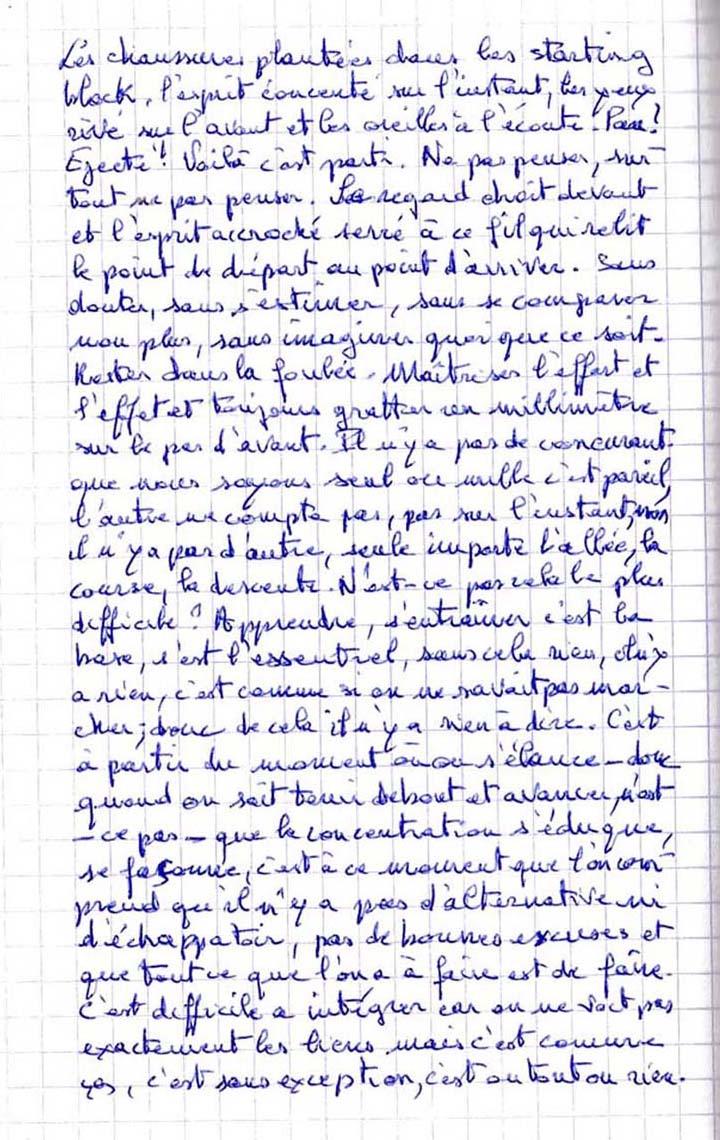 Les chaussures plantées dans les starting
block, l'esprit concentré sur l'instant, les yeux
rivé sur l'avant et les oreilles à l'écoute. Pan?
Ejecté! Voilà c'est parti. Ne pas penser, sur-
tout ne pas penser. Le regard droit devant
et l'esprit accroché serré à ce fil qui relit
le point de départ au point d'arriver. Sans
douter, sans s'estimer, sans se comparer
non plus, sans imaginer quoi que ce soit.
Rester dans la foulée. Maîtriser l'effort et
l'effet et toujours gratter un millimètre
sur le pas d'avant. Il n'y a pas de concurant
que nous soyons seul ou mille c'est pareil,
l'autre ne compte pas, pas sur l'instant, non
il n'y a pas d'autre, seule importe l'allée, la
course, la descente. N'est-ce pas cela le plus
difficile? Apprendre, s'entraîner c'est la
base, c'est l'essentiel, sans cela rien, il n'y
a rien, c'est comme si on ne savait pas mar-
cher; donc de cela il n'y a rien à dire. C'est
à partir du moment où on s'élance - donc
quand on sait tenir debout et avancer, n'est
-ce pas - que la concentration s'éduque,
se façonne, c'est à ce moment que l'on com-
prend qu'il n'y a pas d'alternative ni
d'échappatoir, pas de bonnes excuses et
que tout ce que l'on a à faire est de faire.
C'est difficile a intégrer car on ne voit pas
exactement les liens mais c'est comme
ça, c'est sans exception, c'est ou tout ou rien.